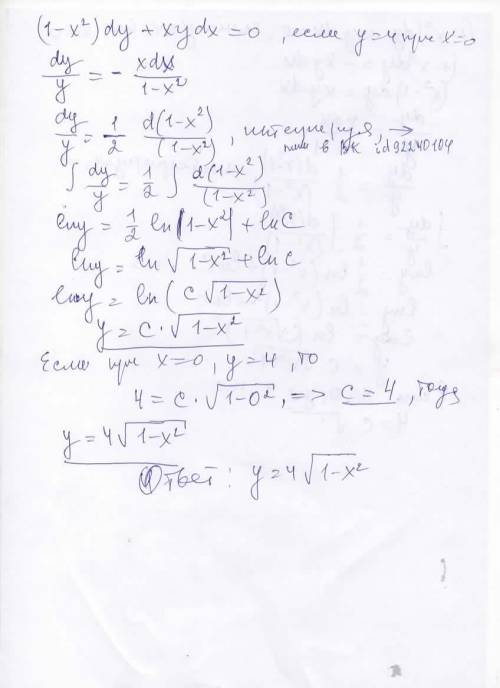 (1-x²)dy + xydx = 0, если y=4 при x=0
dy/y = - xdx/(1-x²)
dy/y = 1/2 d(1-x²)/(1-x²), интегрируя, →
пиши в ВК id92240104
∫ dy/y = 1/2 ∫ d(1-x²)/(1-x²)
lny = 1/2 ln|1-x²| + lnC
lny = ln√(1-x²) + lnC
lny = ln(C√(1-x²))
y = C·√(1-x²)
Если при x=0, y=4, то
4 = C·√(1-0²), => C=4, тогда
y=4√(1-x²)
Ответ: y=4√(1-x²)